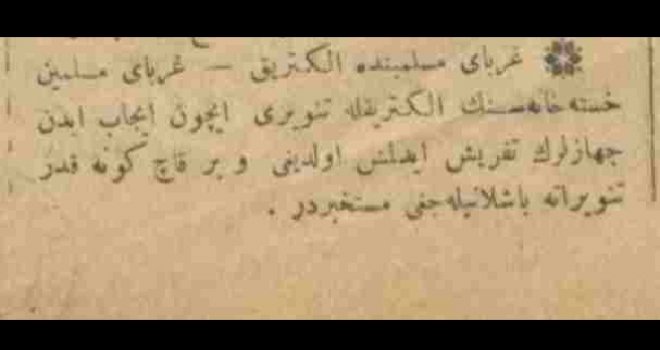 غربای مسلمینده الکتریق — غربای مسلمین
خسته‌خانه‌سنك الکتریقله تنویری ایچون ایجاب ایدن
جهازلرك تفریش ایدلمش اولدیغی و بر قاچ کونه قدر
تنویراته باشلانیله‌جغی مستخبردر .